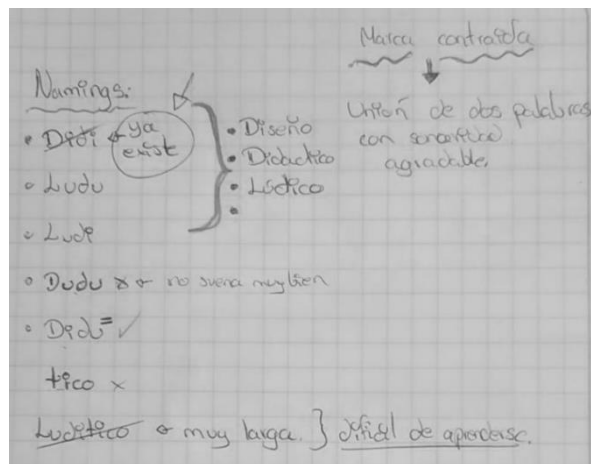 Marca contraída
Unión de dos palabras
con sonoridad
agradable.
Namings:
• Didi ya
exist
• Ludu
• Ludi
• Dudu x no suena muy bien
• Didu = ✓
tico x
Luditico muy larga. } difícil de aprenderse.
• Diseño
• Didactico
• Lúdico
•